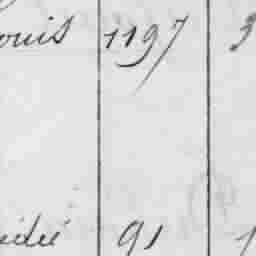 ouis 1197 3
91 1